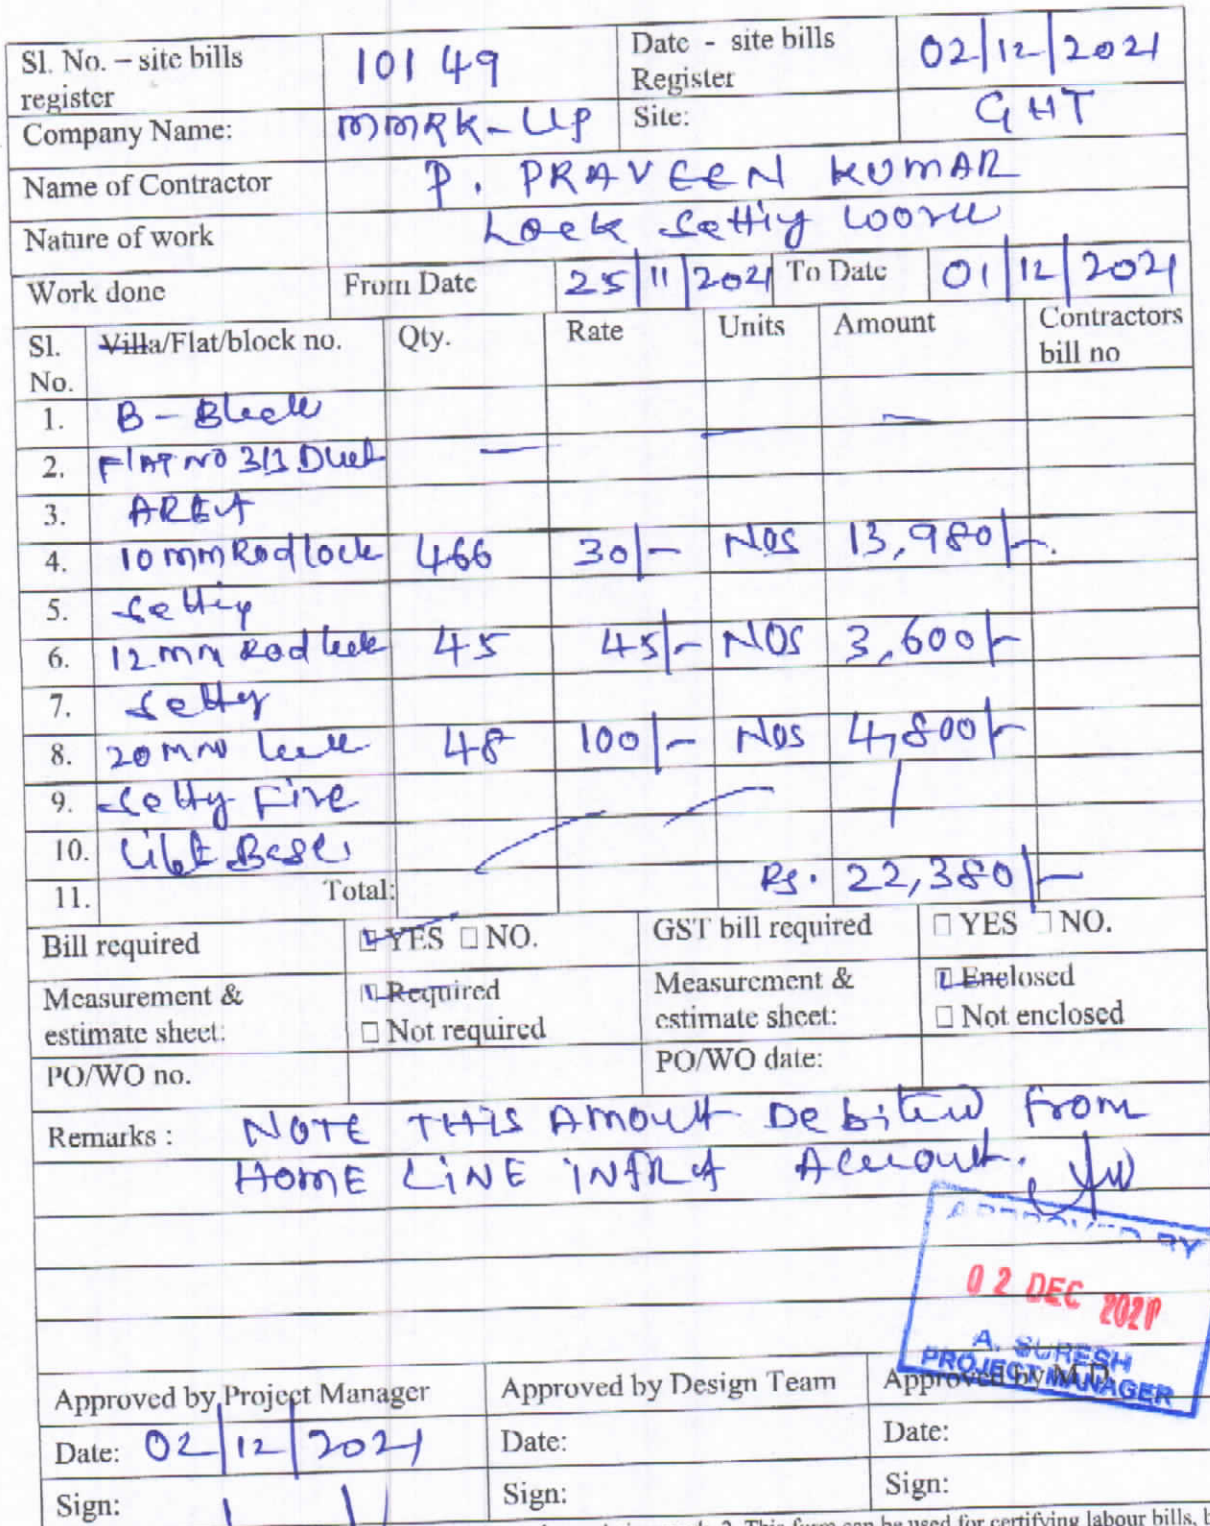 Sl. No. – site bills register 10149 Date - site bills Register 02/12/2021
Company Name: MMRK-UP Site: GHT
Name of Contractor P. PRAVEEN KUMAR
Nature of work Lock Settig woru
Work done From Date 25/11/2021 To Date 01/12/2021
Sl. No. Villa/Flat/block no. Qty. Rate Units Amount Contractors bill no
1. B - Block
2. FlAT NO 313 Duct
3. AREA
4. 10 mm Rod lock 466 30/- Nos 13,980/-.
5. Settig
6. 12 mm Rod lock 45 45/- NOS 3,600/-
7. Setty
8. 20 mm lock 48 100/- Nos 4,800/-
9. Setty Fire
10. Lift Base
11. Total: Rs. 22,380/-
Bill required YES NO. GST bill required YES NO.
Measurement & estimate sheet: Required Not required Measurement & estimate sheet: Enclosed Not enclosed
PO/WO no. PO/WO date:
Remarks : NOTE THIS Amout Debited From
HOME LINE INFRA Account.
APPROVED BY
02 DEC 2021
A. SURESH
PROJECT MANAGER
Approved by Project Manager Approved by Design Team Approved by M.D.
Date: 02/12/2021 Date: Date:
Sign: Sign: Sign:
2. This form can be used for certifying labour bills, b